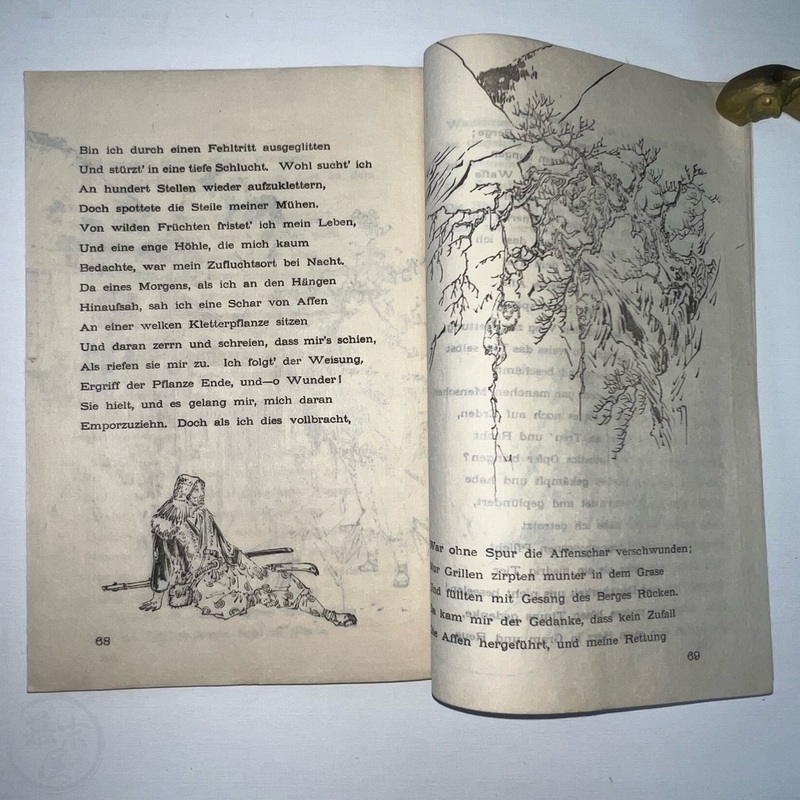 Bin ich durch einen Fehltritt ausgeglitten
Und stürzt' in eine tiefe Schlucht. Wohl sucht' ich
An hundert Stellen wieder aufzuklettern,
Doch spottete die Steile meiner Mühen.
Von wilden Früchten fristet' ich mein Leben,
Und eine enge Höhle, die mich kaum
Bedachte, war mein Zufluchtsort bei Nacht.
Da eines Morgens, als ich an den Hängen
Hinaufsah, sah ich eine Schar von Affen
An einer welken Kletterpflanze sitzen
Und daran zerrn und schreien, dass mir's schien,
Als riefen sie mir zu. Ich folgt' der Weisung,
Ergriff der Pflanze Ende, und—o Wunder!
Sie hielt, und es gelang mir, mich daran
Emporzuziehn. Doch als ich dies vollbracht,
68
War ohne Spur die Affenschar verschwunden;
Grillen zirpten munter in dem Grase
füllten mit Gesang des Berges Rücken.
kam mir der Gedanke, dass kein Zufall
Affen hergeführt, und meine Rettung
69